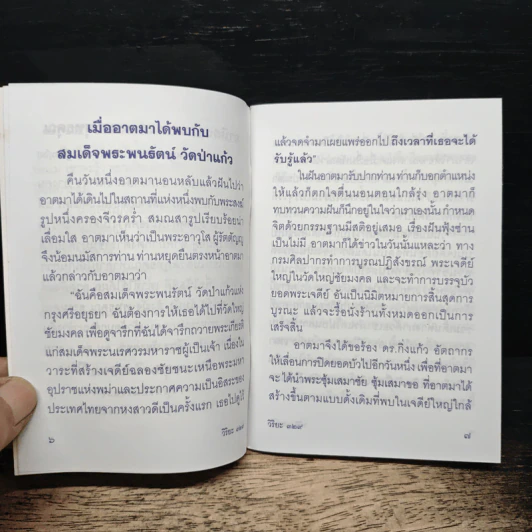 เมื่ออาตมาได้พบกับ
สมเด็จพระพนรัตน์ วัดป่าแก้ว
คืนวันหนึ่งอาตมานอนหลับแล้วฝันไปว่า
อาตมาได้เดินไปในสถานที่แห่งหนึ่งพบกับพระสงฆ์
รูปหนึ่งครองจีวรคร่ำ สมณสารูปเรียบร้อยน่า
เลื่อมใส อาตมาเห็นว่าเป็นพระอาวุโส ผู้รัตตัญญู
จึงน้อมนมัสการท่าน ท่านหยุดยืนตรงหน้าอาตมา
แล้วกล่าวกับอาตมาว่า
"ฉันคือสมเด็จพระพนรัตน์ วัดป่าแก้วแห่ง
กรุงศรีอยุธยา ฉันต้องการให้เธอได้ไปที่วัดใหญ่
ชัยมงคล เพื่อดูจารึกที่ฉันได้จารึกถวายพระเกียรติ
แก่สมเด็จพระนเรศวรมหาราชผู้เป็นเจ้า เนื่องใน
วาระที่สร้างเจดีย์ฉลองชัยชนะเหนือพระมหา
อุปราชแห่งพม่าและประกาศความเป็นอิสระของ
ประเทศไทยจากหงสาวดีเป็นครั้งแรก เธอไปดูไว้
๖
วิริยะ ๓๒๙
แล้วจดจำมาเผยแพร่ออกไป ถึงเวลาที่เธอจะได้
รับรู้แล้ว"
ในฝันอาตมารับปากท่าน ท่านก็บอกตำแหน่ง
ให้แล้วก็ตกใจตื่นนอนตอนใกล้รุ่ง อาตมาก็
ทบทวนความฝันก็นึกอยู่ในใจว่าเราเองนั้น กำหนด
จิตด้วยกรรมฐานมีสติอยู่เสมอ เรื่องฝันฟุ้งซ่าน
เป็นไม่มี อาตมาก็ได้ข่าวในวันนั้นแหละว่า ทาง
กรมศิลปากรทำการบูรณปฏิสังขรณ์ พระเจดีย์
ใหญ่ในวัดใหญ่ชัยมงคล และจะทำการบรรจุบัว
ยอดพระเจดีย์ อันเป็นนิมิตหมายการสิ้นสุดการ
บูรณะ แล้วจะรื้อนั่งร้านทั้งหมดออกเป็นการ
เสร็จสิ้น
อาตมาจึงได้ขอร้อง ดร.กิ่งแก้ว อัตถากร
ให้เลื่อนการปิดยอดบัวไปอีกวันหนึ่ง เพื่อที่อาตมา
จะ ได้นำพระซุ้มเสมาชัย ซุ้มเสมาขอ ที่อาตมาได้
สร้างขึ้นตามแบบดั้งเดิมที่พบในเจดีย์ใหญ่ใกล้
วิริยะ ๓๒๙
๗